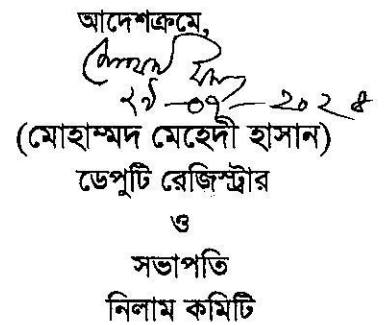 আদেশক্রমে,
(মোহাম্মদ মেহেদী হাসান)
ডেপুটি রেজিস্ট্রার
ও
সভাপতি
নিলাম কমিটি